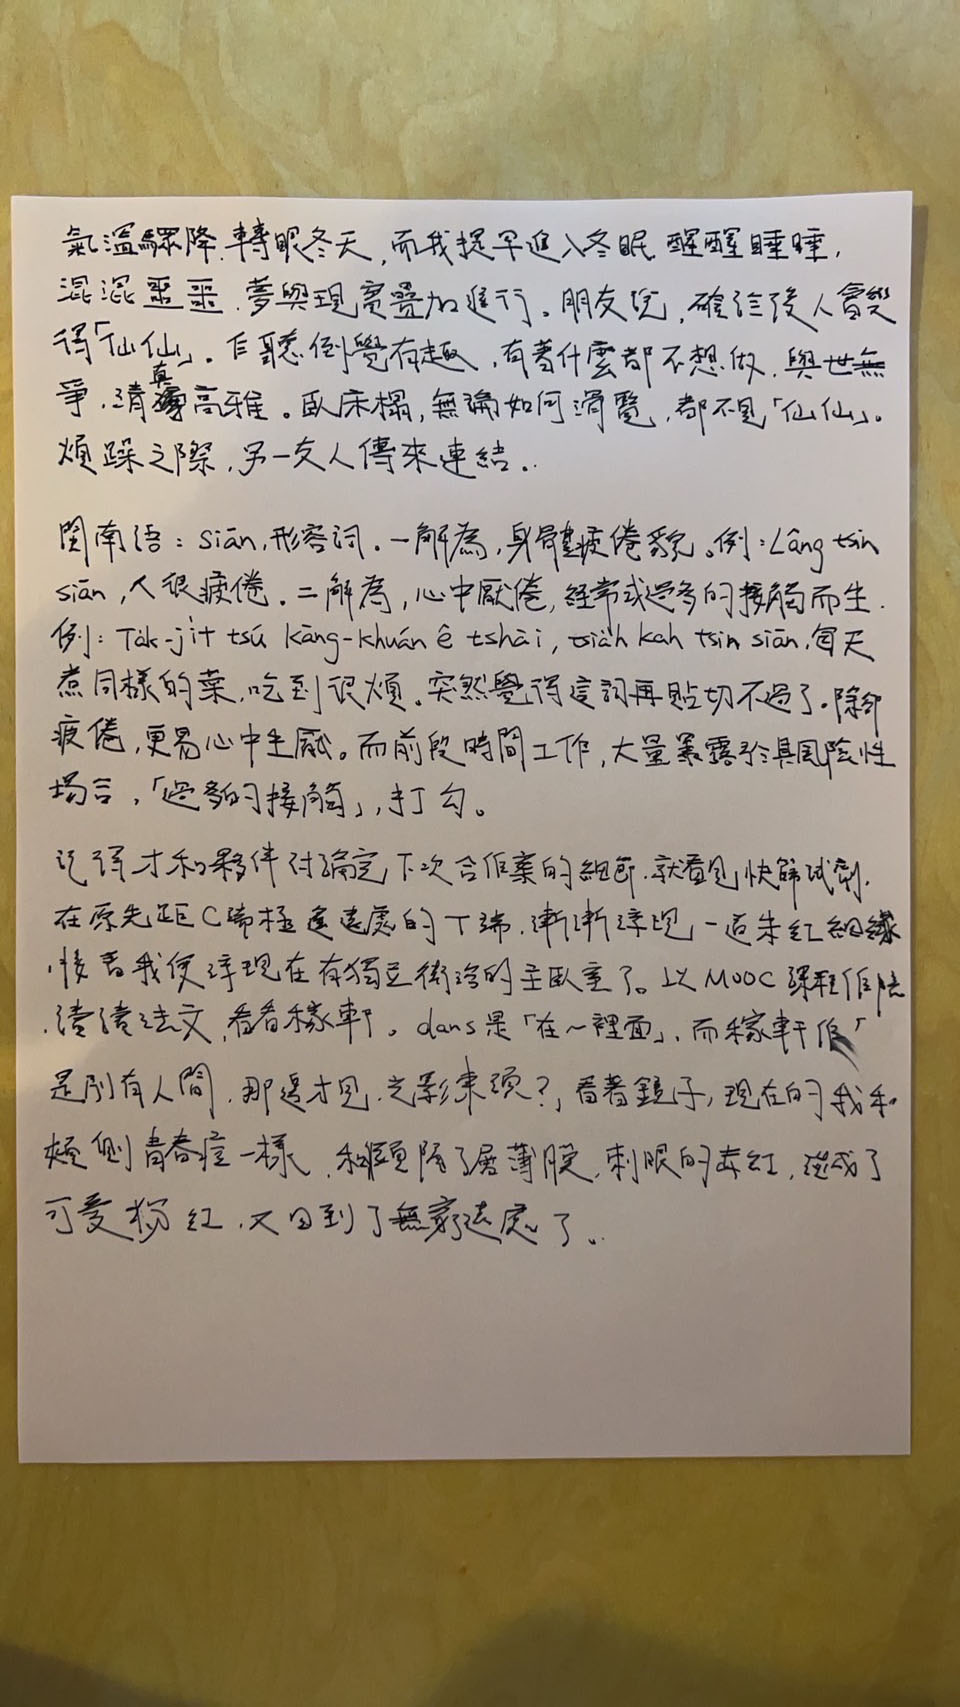 氣溫驟降，轉眼冬天，而我提早進入冬眠，醒醒睡睡，
混混噩噩，夢與現實疊加進行。朋友說，確診後人會變
得「仙仙」。乍聽倒覺有趣，有著什麼都不想做，與世無
爭，清真高雅。臥床榻，無論如何滑覽，都不見「仙仙」。
煩躁之際，另一友人傳來連結。
閩南語：siān，形容詞。一解為，身體疲倦貌。例：Lâng tsin
siān，人很疲倦。二解為，心中厭倦，經常或過多的接觸而生。
例：Ta̍k-ji̍t tsú kāng-khuán ê tshài, tsia̍h kah tsin siān，每天
煮同樣的菜，吃到很煩。突然覺得這詞再貼切不過了。除卻
疲倦，更易心中生厭。而前段時間工作，大量暴露於具風險性
場合，「過多的接觸」，打勾。
記得才和夥伴討論確定下次合作案的細節，就看見快篩試劑，
在原先距C端極遙遠處的T端，漸漸浮現一道朱紅細線
，接着我便浮現在有獨立衛浴的主臥室了。以MOOC課程作陪
，讀讀法文，看看稼軒。dans是「在～裡面」，而稼軒作「
是別有人間，那邊才見，光影東頭？」看著鏡子，現在的我和
頰側青春痘一樣，稍顯隔了層薄膜，刺眼的赤紅，變成了
可愛粉紅，又回到了無窮遠處了。